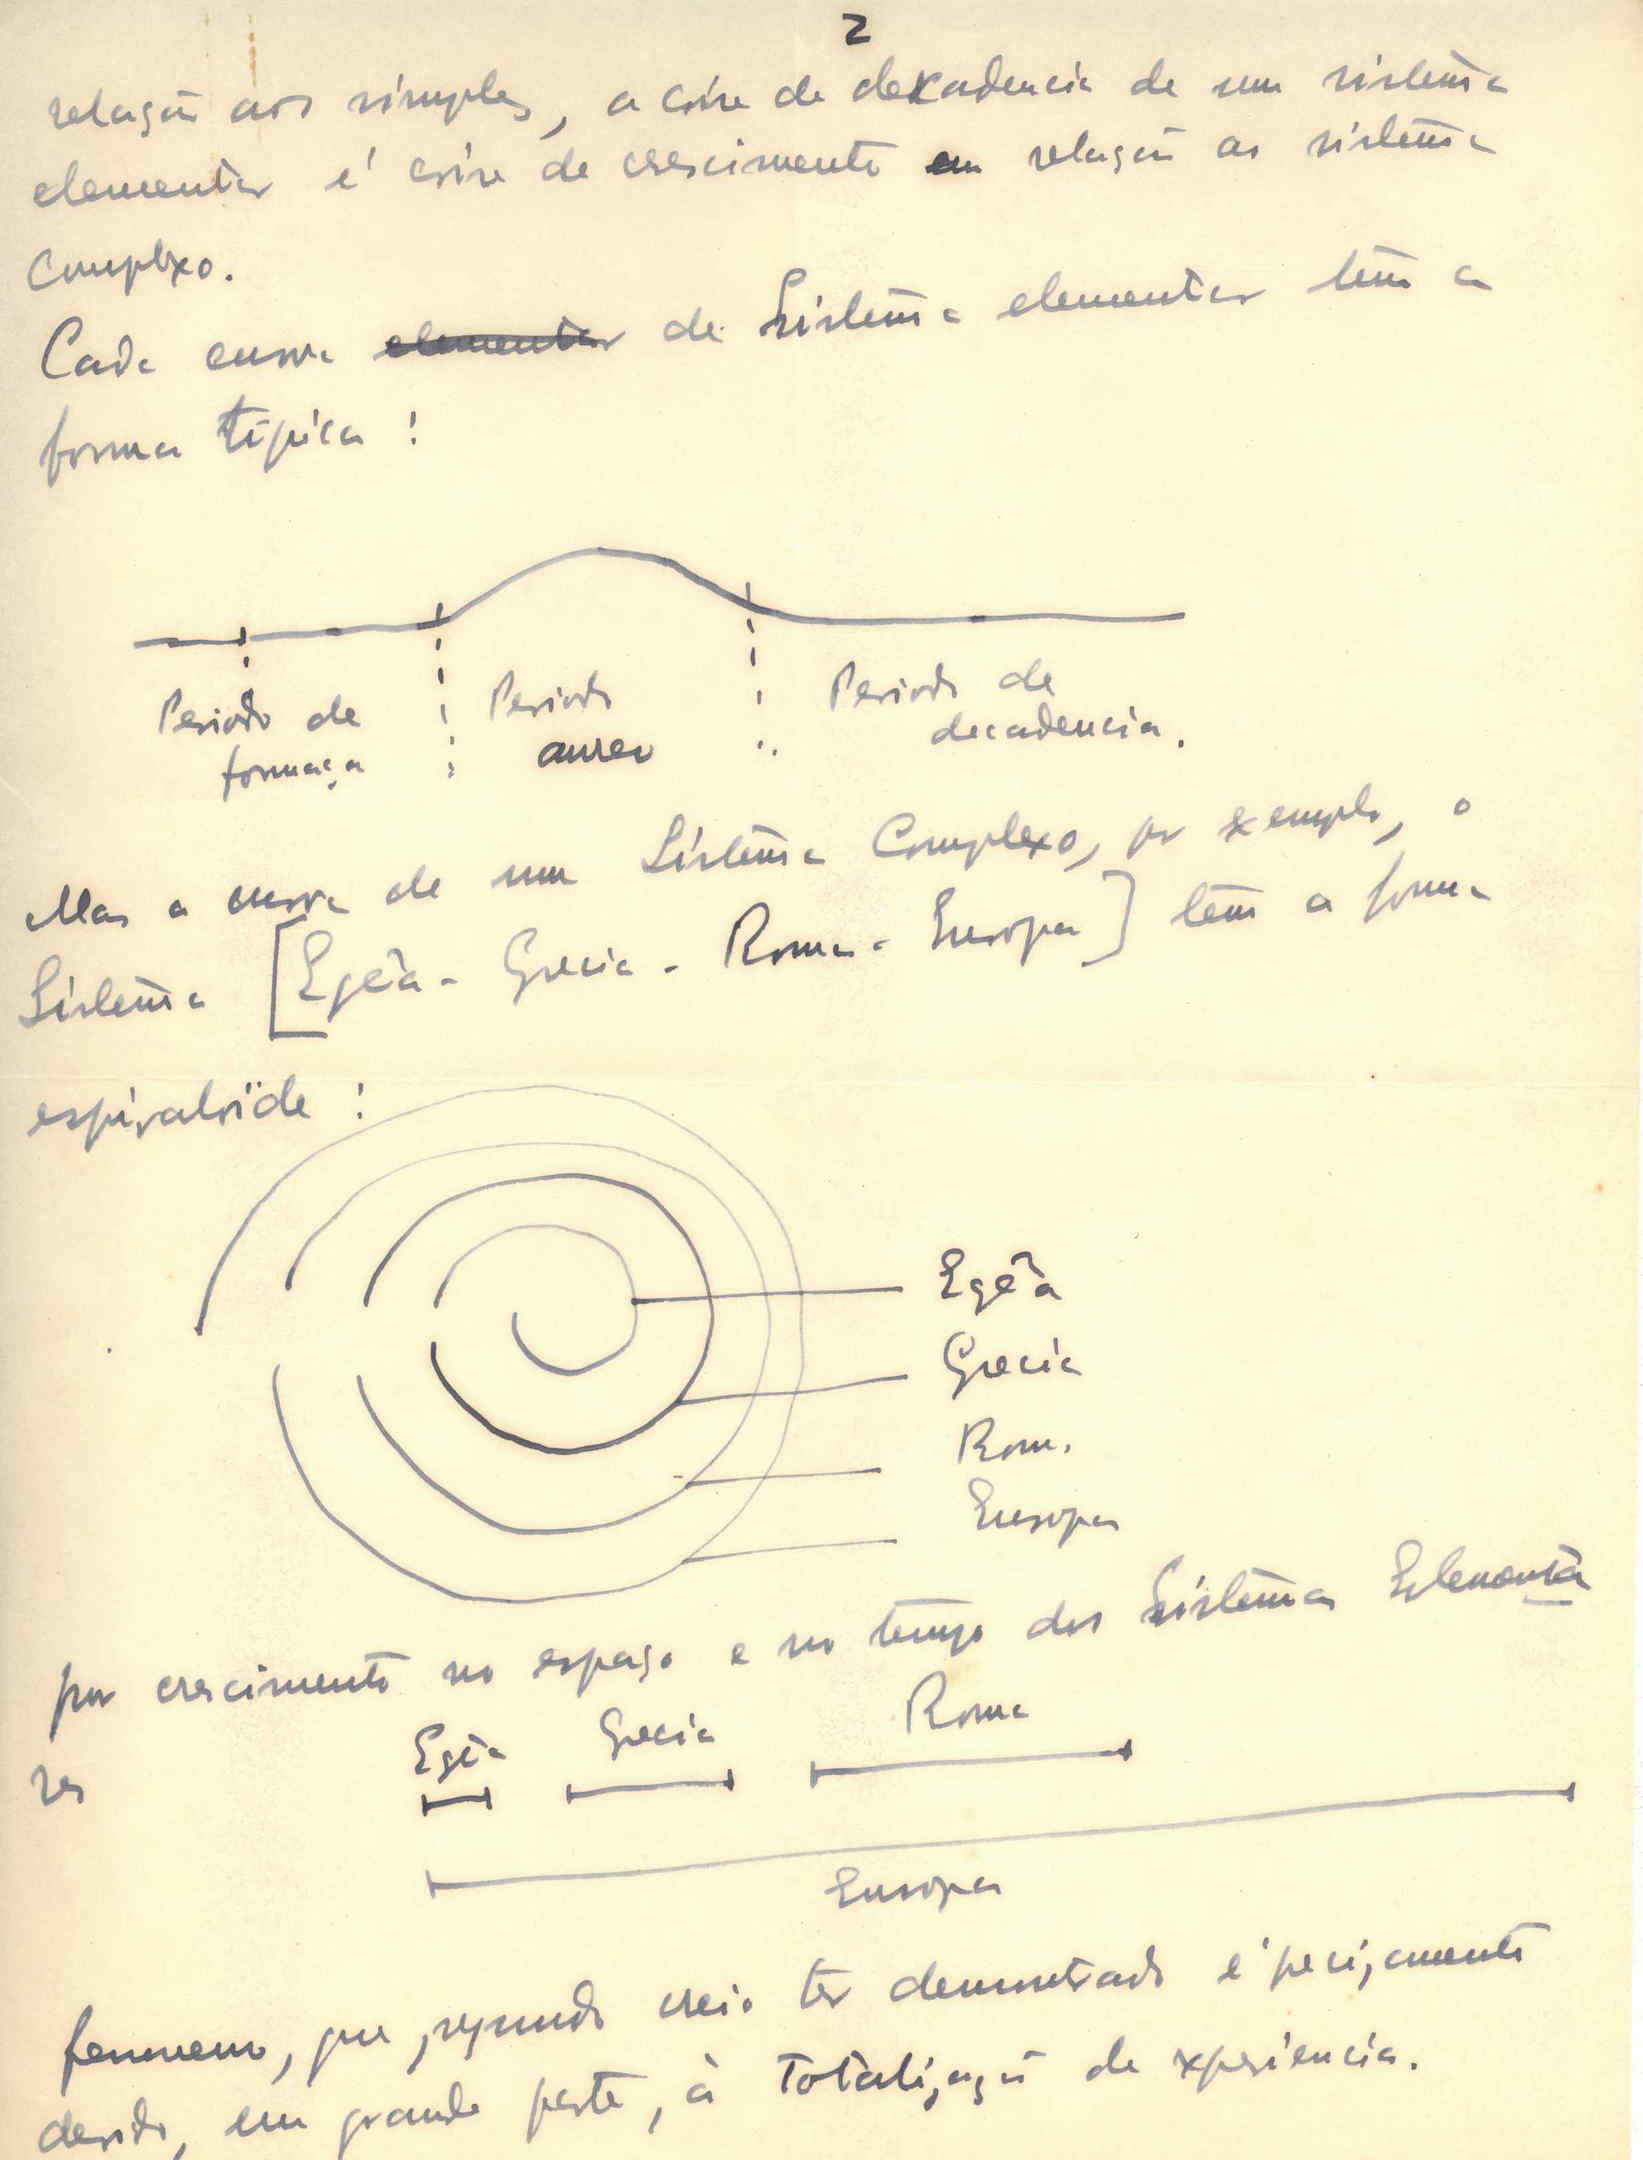 2
relação aos simples, a crise de decadencia de um sistema
elementar é crise de crescimento em relação ao sistema
complexo.
Cada curva elementar de Sistema elementar tem a
forma típica:
Periodo de formaça
Periodo aureo
Periodo de decadencia.
Mas a curva de um Sistema Complexo, por exemplo, o
Sistema [Egêa - Grecia - Roma - Europa] tem a forma
espiralóide:
Egêa
Grecia
Roma
Europa
por crescimento no espaço e no tempo dos Sistemas Elementa
res
Egêa Grecia Roma
Europa
fenomeno, que, segundo creio ter demonstrado é precizamente
devido, em grande parte, à totalização de experiencia.